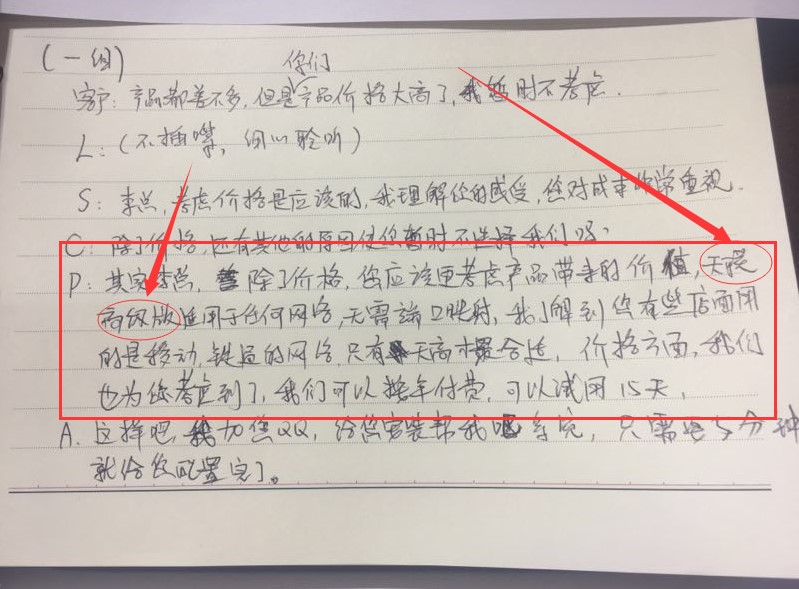 (一组)
你们
客户：产品都差不多，但是产品价格太高了，我暂时不考虑．
L：(不插嘴，细心聆听)
S：李总，考虑价格是应该的，我理解您的感受，您对成本非常重视．
C：除了价格，还有其他的原因使您暂时不选择我们吗？
P：其实李总，除了价格，您应该更考虑产品带来的价值，天视
高级版适用于任何网络，无需端口映射，我了解到您有些店面用
的是移动，铁通的网络，只有天高才最合适，价格方面，我们
也为您考虑到了，我们可以按年付费，可以试用15天，
A．这样吧，我加您QQ，给您安装 系统，只需要5分钟
就给您配置完了。